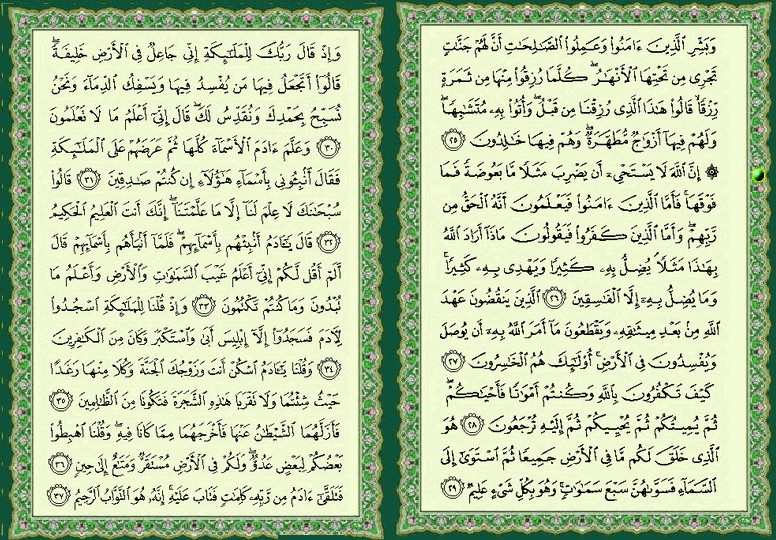 وَبَشِّرِ ٱلَّذِينَ ءَامَنُوا۟ وَعَمِلُوا۟ ٱلصَّـٰلِحَـٰتِ أَنَّ لَهُمْ جَنَّـٰتٍ
تَجْرِى مِن تَحْتِهَا ٱلْأَنْهَـٰرُ ۖ كُلَّمَا رُزِقُوا۟ مِنْهَا مِن ثَمَرَةٍ
رِّزْقًا ۙ قَالُوا۟ هَـٰذَا ٱلَّذِى رُزِقْنَا مِن قَبْلُ ۖ وَأُتُوا۟ بِهِۦ مُتَشَـٰبِهًا ۖ
وَلَهُمْ فِيهَآ أَزْوَٰجٌ مُّطَهَّرَةٌ ۖ وَهُمْ فِيهَا خَـٰلِدُونَ ٢٥
۞ إِنَّ ٱللَّهَ لَا يَسْتَحْىِۦٓ أَن يَضْرِبَ مَثَلًا مَّا بَعُوضَةً فَمَا
فَوْقَهَا ۚ فَأَمَّا ٱلَّذِينَ ءَامَنُوا۟ فَيَعْلَمُونَ أَنَّهُ ٱلْحَقُّ مِن
رَّبِّهِمْ ۖ وَأَمَّا ٱلَّذِينَ كَفَرُوا۟ فَيَقُولُونَ مَاذَآ أَرَادَ ٱللَّهُ
بِهَـٰذَا مَثَلًا ۘ يُضِلُّ بِهِۦ كَثِيرًا وَيَهْدِى بِهِۦ كَثِيرًا ۚ
وَمَا يُضِلُّ بِهِۦٓ إِلَّا ٱلْفَـٰسِقِينَ ٢٦ ٱلَّذِينَ يَنقُضُونَ عَهْدَ
ٱللَّهِ مِنۢ بَعْدِ مِيثَـٰقِهِۦ وَيَقْطَعُونَ مَآ أَمَرَ ٱللَّهُ بِهِۦٓ أَن يُوصَلَ
وَيُفْسِدُونَ فِى ٱلْأَرْضِ ۚ أُو۟لَـٰٓئِكَ هُمُ ٱلْخَـٰسِرُونَ ٢٧
كَيْفَ تَكْفُرُونَ بِٱللَّهِ وَكُنتُمْ أَمْوَٰتًا فَأَحْيَـٰكُمْ ۖ
ثُمَّ يُمِيتُكُمْ ثُمَّ يُحْيِيكُمْ ثُمَّ إِلَيْهِ تُرْجَعُونَ ٢٨ هُوَ
ٱلَّذِى خَلَقَ لَكُم مَّا فِى ٱلْأَرْضِ جَمِيعًا ثُمَّ ٱسْتَوَىٰٓ إِلَى
ٱلسَّمَآءِ فَسَوَّىٰهُنَّ سَبْعَ سَمَـٰوَٰتٍ ۚ وَهُوَ بِكُلِّ شَىْءٍ عَلِيمٌ ٢٩
وَإِذْ قَالَ رَبُّكَ لِلْمَلَـٰٓئِكَةِ إِنِّى جَاعِلٌ فِى ٱلْأَرْضِ خَلِيفَةً ۖ
قَالُوٓا۟ أَتَجْعَلُ فِيهَا مَن يُفْسِدُ فِيهَا وَيَسْفِكُ ٱلدِّمَآءَ وَنَحْنُ
نُسَبِّحُ بِحَمْدِكَ وَنُقَدِّسُ لَكَ ۖ قَالَ إِنِّىٓ أَعْلَمُ مَا لَا تَعْلَمُونَ
٣٠ وَعَلَّمَ ءَادَمَ ٱلْأَسْمَآءَ كُلَّهَا ثُمَّ عَرَضَهُمْ عَلَى ٱلْمَلَـٰٓئِكَةِ
فَقَالَ أَنۢبِـُٔونِى بِأَسْمَآءِ هَـٰٓؤُلَآءِ إِن كُنتُمْ صَـٰدِقِينَ ٣١ قَالُوا۟
سُبْحَـٰنَكَ لَا عِلْمَ لَنَآ إِلَّا مَا عَلَّمْتَنَآ ۖ إِنَّكَ أَنتَ ٱلْعَلِيمُ ٱلْحَكِيمُ
٣٢ قَالَ يَـٰٓـَٔادَمُ أَنۢبِئْهُم بِأَسْمَآئِهِمْ ۖ فَلَمَّآ أَنۢبَأَهُم بِأَسْمَآئِهِمْ قَالَ
أَلَمْ أَقُل لَّكُمْ إِنِّىٓ أَعْلَمُ غَيْبَ ٱلسَّمَـٰوَٰتِ وَٱلْأَرْضِ وَأَعْلَمُ مَا
تُبْدُونَ وَمَا كُنتُمْ تَكْتُمُونَ ٣٣ وَإِذْ قُلْنَا لِلْمَلَـٰٓئِكَةِ ٱسْجُدُوا۟
لِـَٔادَمَ فَسَجَدُوٓا۟ إِلَّآ إِبْلِيسَ أَبَىٰ وَٱسْتَكْبَرَ وَكَانَ مِنَ ٱلْكَـٰفِرِينَ
٣٤ وَقُلْنَا يَـٰٓـَٔادَمُ ٱسْكُنْ أَنتَ وَزَوْجُكَ ٱلْجَنَّةَ وَكُلَا مِنْهَا رَغَدًا
حَيْثُ شِئْتُمَا وَلَا تَقْرَبَا هَـٰذِهِ ٱلشَّجَرَةَ فَتَكُونَا مِنَ ٱلظَّـٰلِمِينَ ٣٥
فَأَزَلَّهُمَا ٱلشَّيْطَـٰنُ عَنْهَا فَأَخْرَجَهُمَا مِمَّا كَانَا فِيهِ ۖ وَقُلْنَا ٱهْبِطُوا۟
بَعْضُكُمْ لِبَعْضٍ عَدُوٌّ ۖ وَلَكُمْ فِى ٱلْأَرْضِ مُسْتَقَرٌّ وَمَتَـٰعٌ إِلَىٰ حِينٍ ٣٦
فَتَلَقَّىٰٓ ءَادَمُ مِن رَّبِّهِۦ كَلِمَـٰتٍ فَتَابَ عَلَيْهِ ۚ إِنَّهُۥ هُوَ ٱلتَّوَّابُ ٱلرَّحِيمُ ٣٧